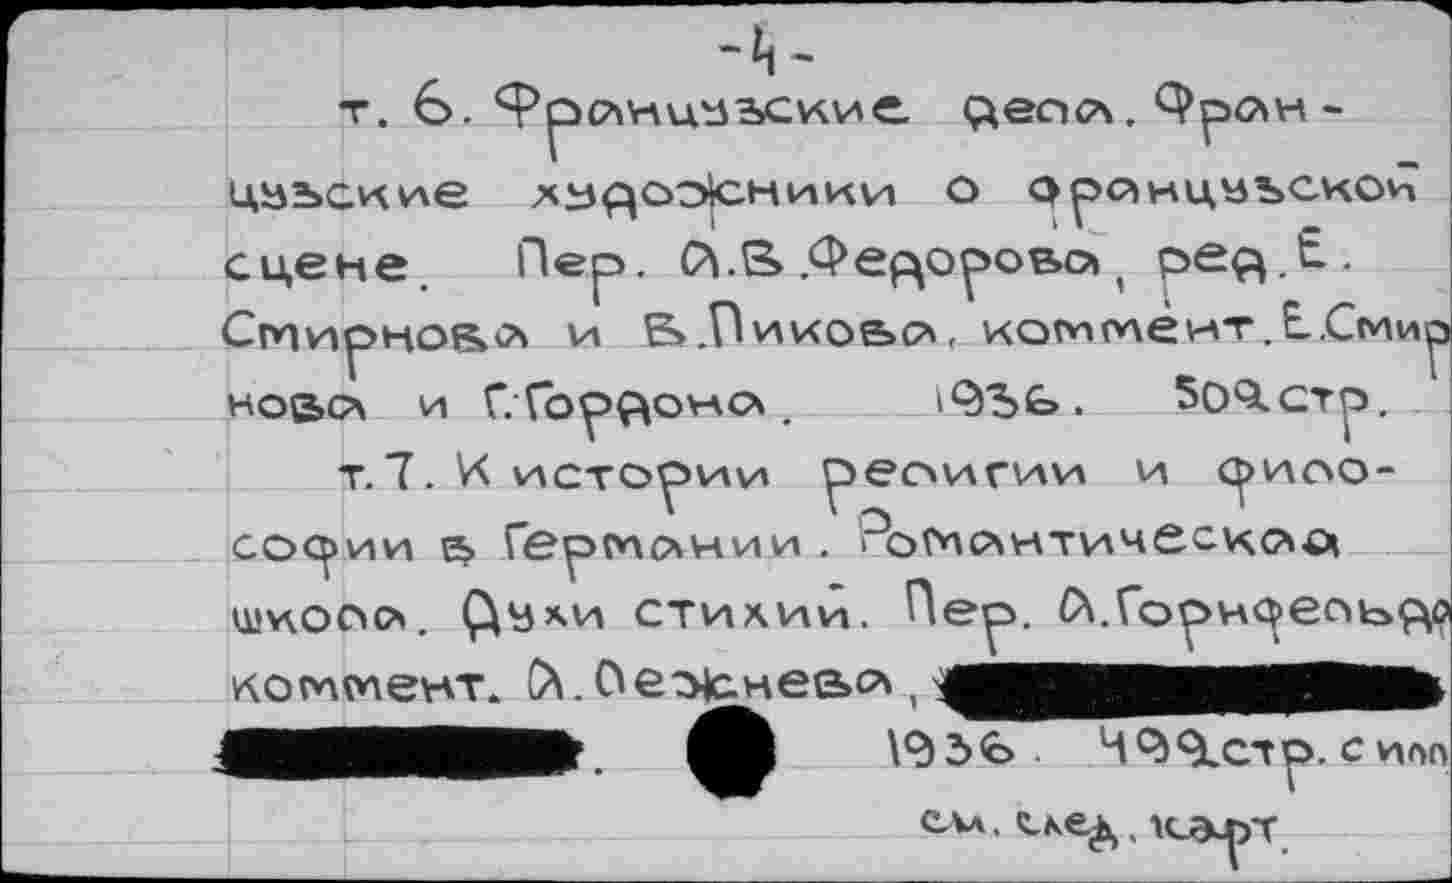 -4-
т. 6. Французские дела. Фран-
цузские художники о французской
сцене. Пер. А.В.Федорова, ред.Е.
Смирнова и В.Пикова, коммент.Е.Смир
нова и Г.Гордона. 1936. 502стр.
т.7. К истории религии и фило-
софии в Германии. Романтическая
школа. Духи стихий. Пер. А.Горнфельда
коммент. А.Лежнева,
. 1936. 492стр. с илл
см. след. карт.